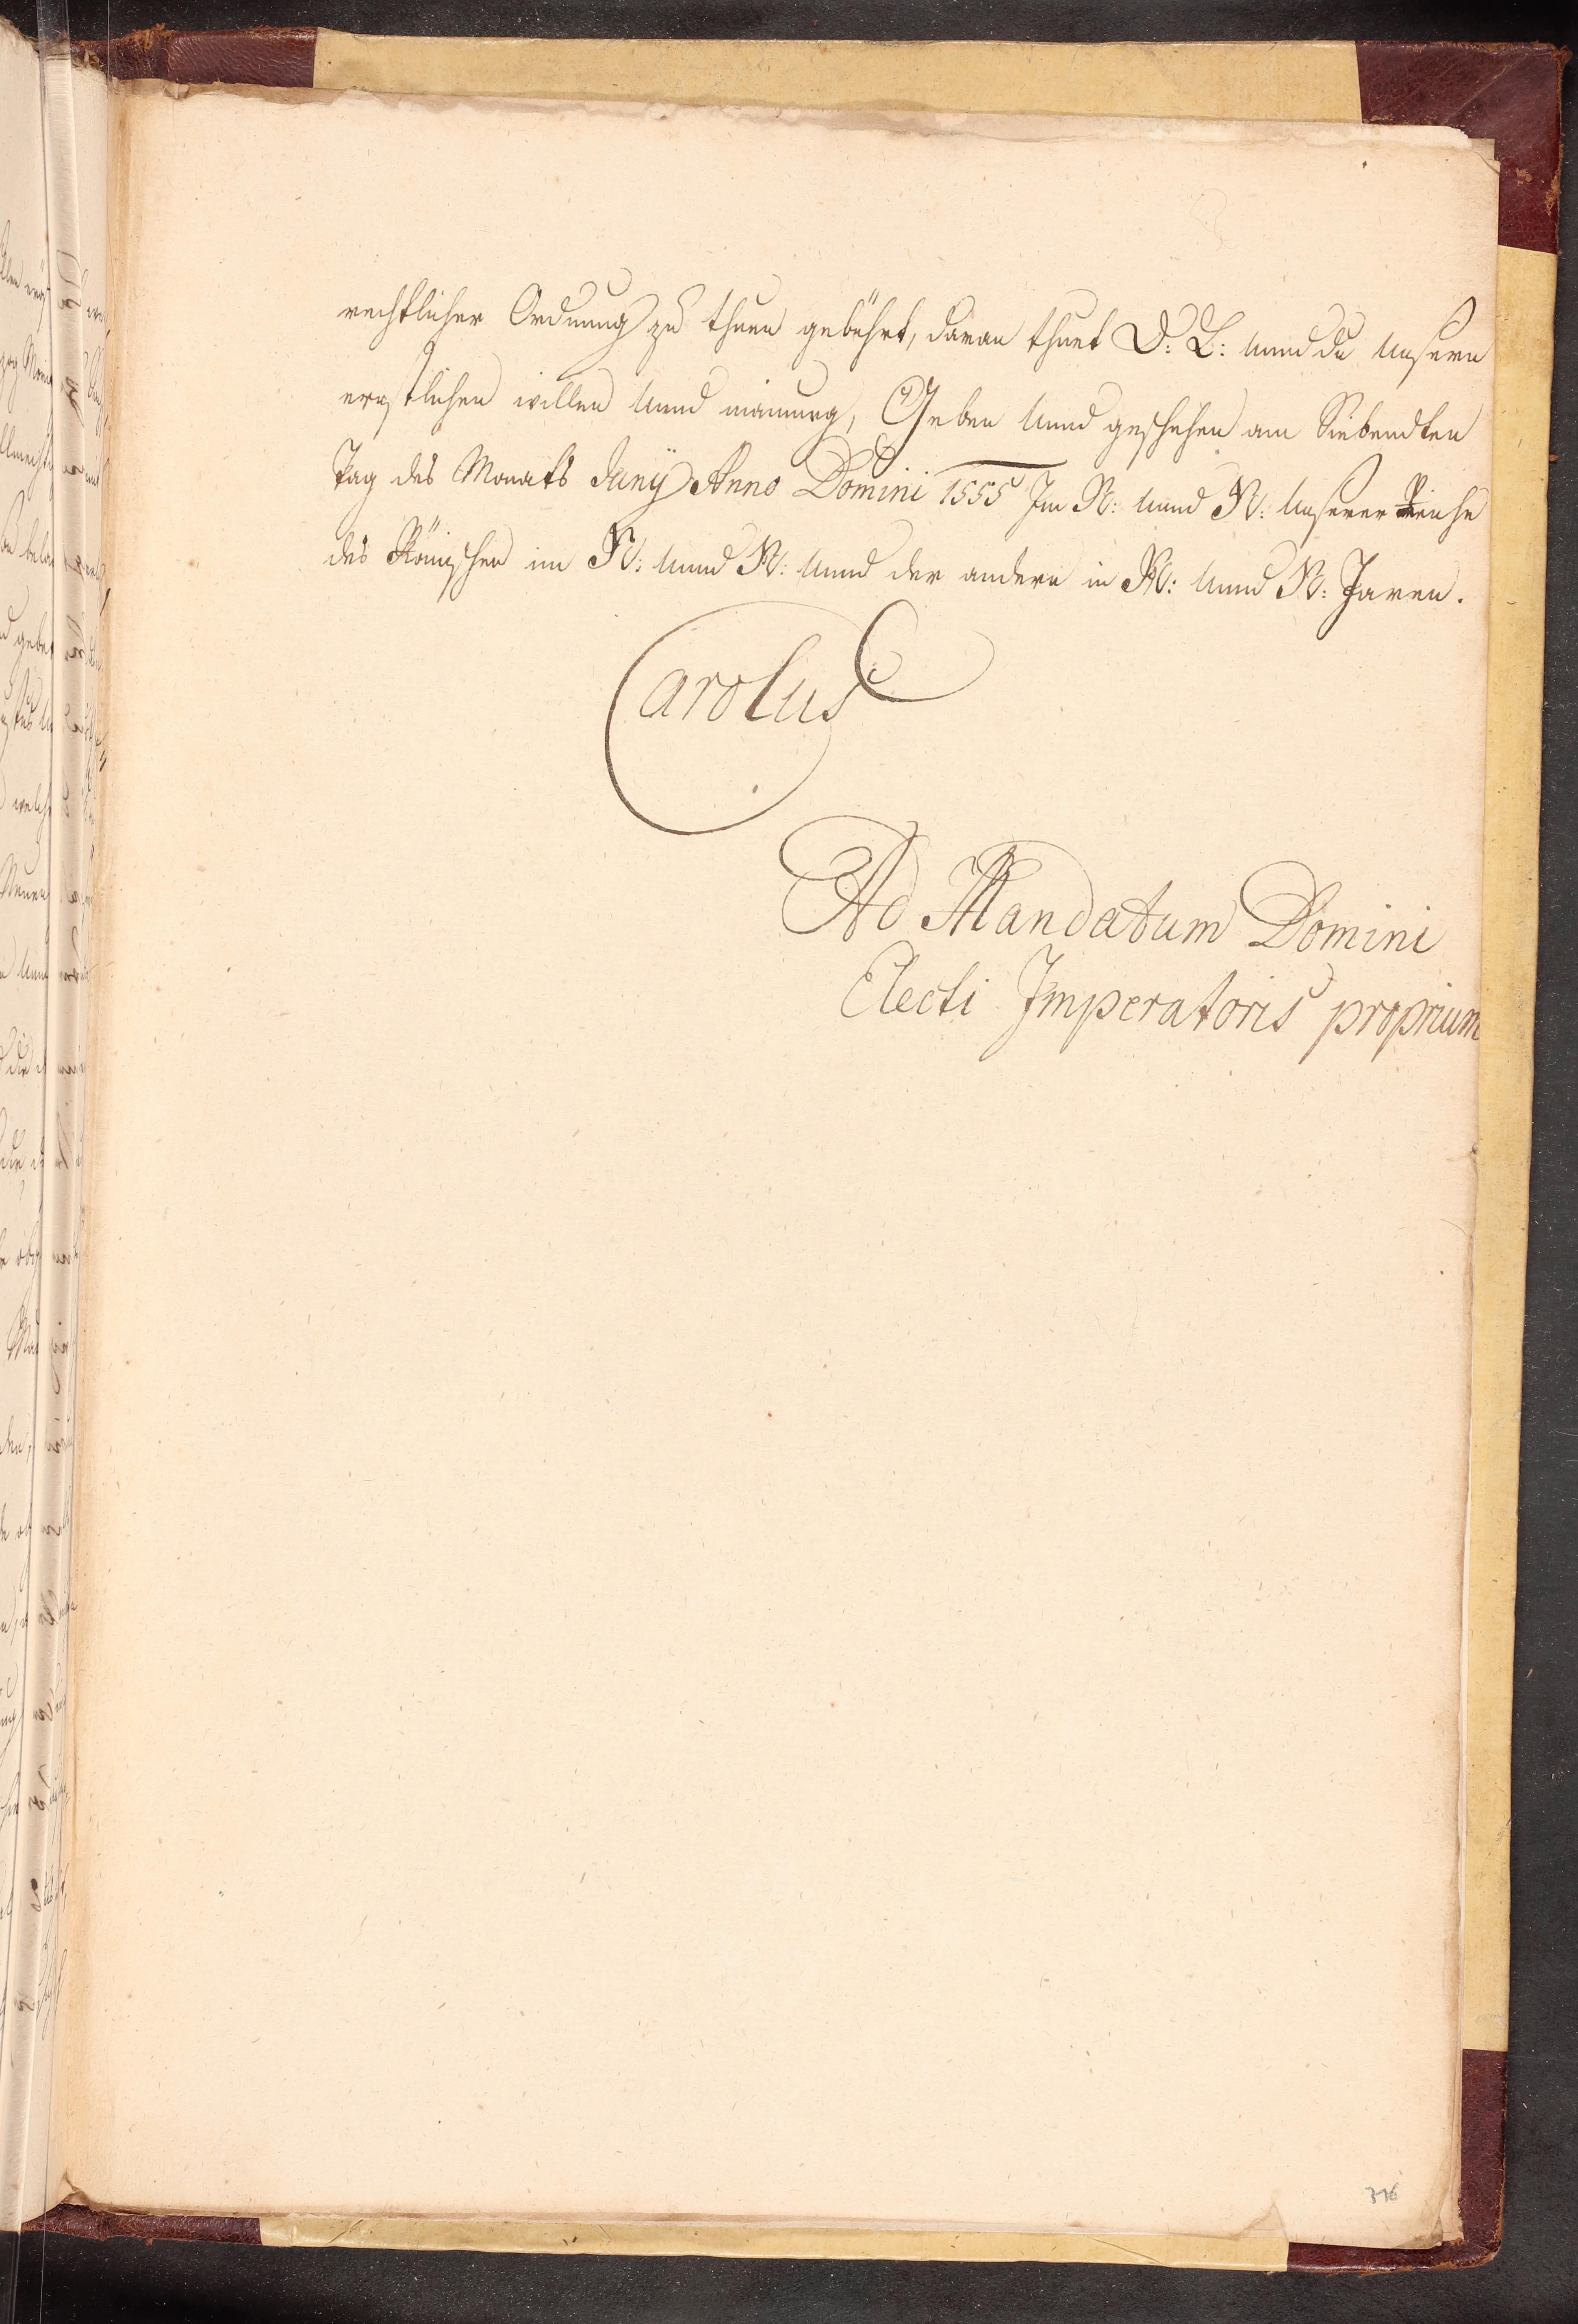 rechtlicher Ordnung zu thuen gebührt, daran thuet D: L: unnd du unsern
ernstlichen willen unnd mainung, Geben unnd geschehen am Siebendten
Tag des Monats Junÿ Anno Domini 1555 Im N: unnd N: unserer Reiche
des Römischen im N: unnd N: unnd der andern in N: unnd N: Jaren.
Carolus
Ad Mandatum Domini
Electi Imperatoris proprium
376